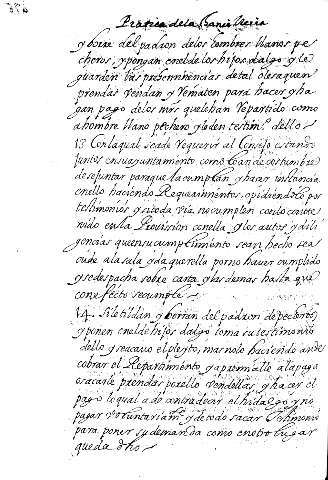 Practica de la Chanzilleria
y borre del padron de los hombres llanos pe
cheros, y pongan en el de los hijos dalgo y le
guarden sus preheminencias de tal o le saquen
prendas vendan y rematen para hacer y ha
gan pago de los mrs que le han repartido como
a hombre llano pechero y le den testimo. dello
13 Con la qual se a de requerir al Consejo estando
juntos en su ayuntamiento como lo an de costumbre
de se juntar para que la cumplan y hacer instancia
en ello haciendo Requerimientos, y pidiendolo por
testimonios y si toda via no cumplen con lo conte
nido en la Provision con ella y los autos y dili
gencias que en su cumplimiento sean hecho se a
cude a la sala y da querella por no haver cumplido
y se despacha sobre carta y las demas hasta que
con efecto se cumple
14. Si le tildan y borran del padron de pecheros
y ponen en el de hijos dalgo toma su testimonio
dello y se acavo el pleyto, mas no lo haciendo an de
cobrar el Repartimiento y apremialle a la paga
o sacarle prendas por ello vendellas y hacer el
pago lo qual a de contradecir el hidalgo y no
pagar voluntariamte y de todo sacar Testimonio
para poner su demanda como en otro lugar
queda dho